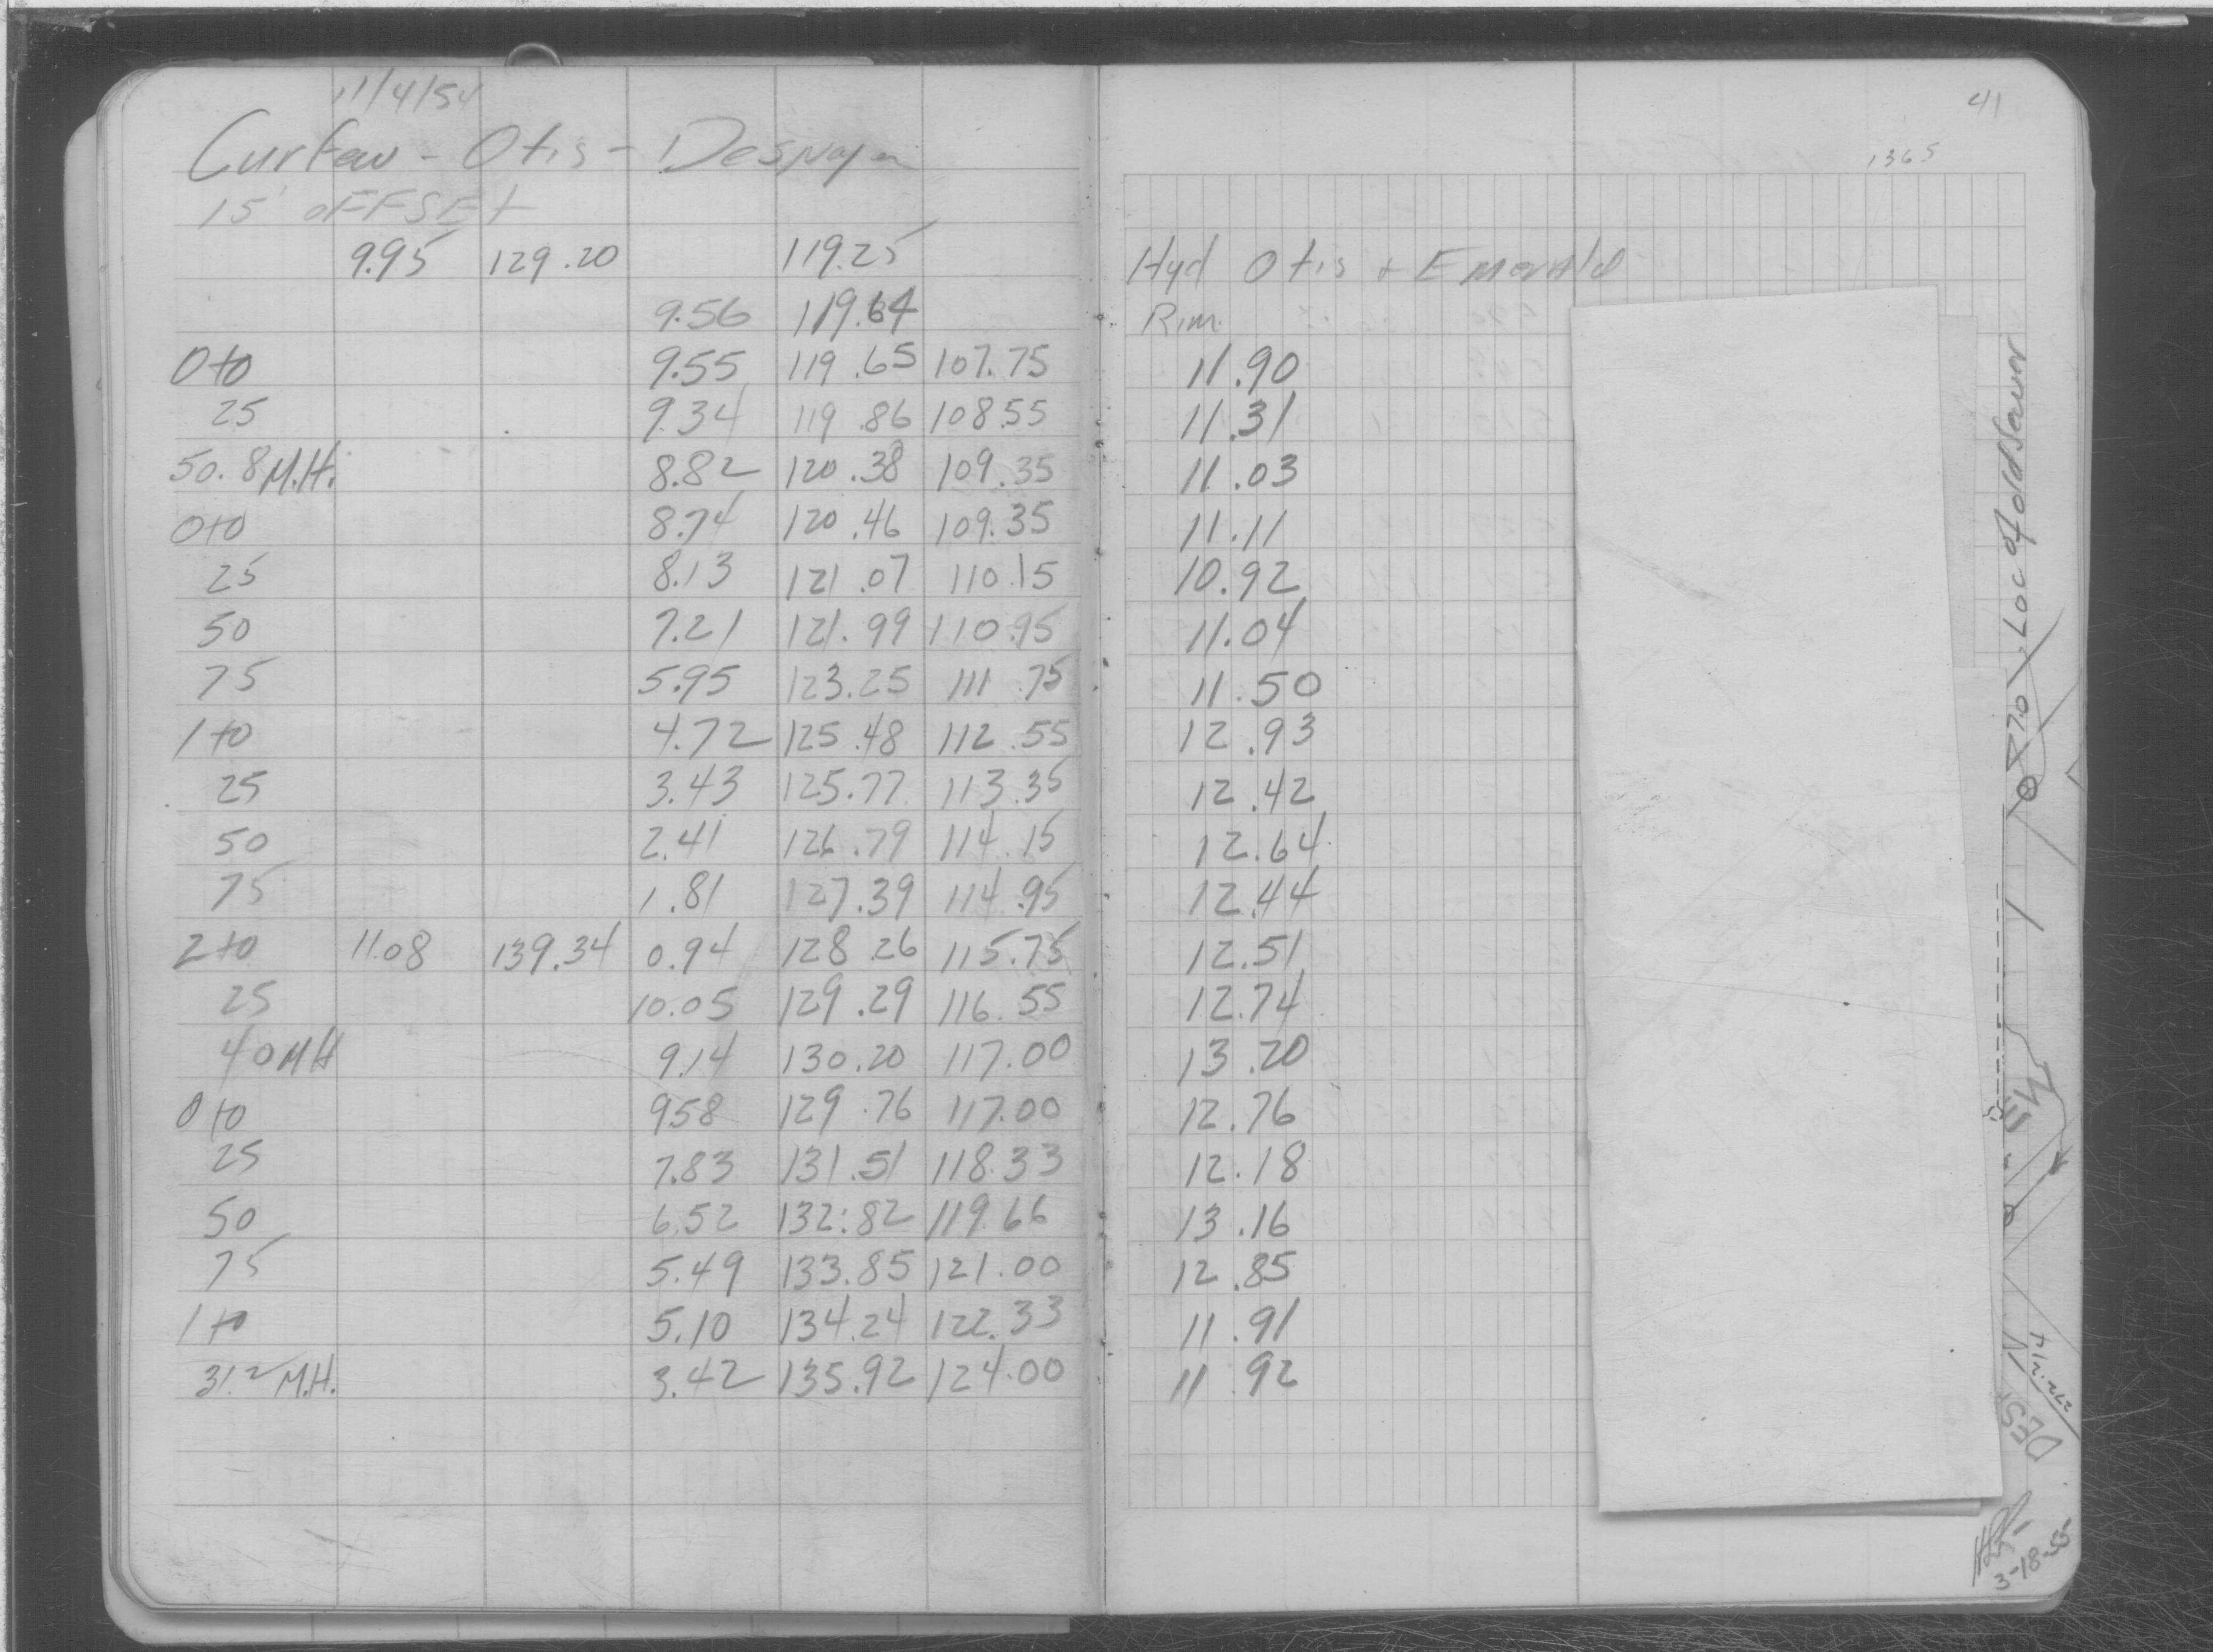 11/4/54
Curfew - Otis -
15' OFFSEt
9.95 129.20 119.25
9.56 119.64
0+0 9.55 119.65 107.75
25 9.34 119.86 108.55
50.8 M.H. 8.82 120.38 109.35
0+0 8.74 120.46 109.35
25 8.13 121.07 110.15
50 7.21 121.99 110.95
75 5.95 123.25 111.75
1+0 4.72 125.48 112.55
25 3.43 125.77 113.35
50 2.41 126.79 114.15
75 1.81 127.39 114.95
2+0 11.08 139.34 0.94 128.26 115.75
25 10.05 129.29 116.55
40 MH 9.14 130.20 117.00
0+0 9.58 129.76 117.00
25 7.83 131.51 118.33
50 6.52 132.82 119.66
75 5.49 133.85 121.00
1+0 5.10 134.24 122.33
31.2 M.H. 3.42 135.92 124.00
41
1365
Hyd Otis + Emerald
Rim
11.90
11.31
11.03
11.11
10.92
11.04
11.50
12.93
12.42
12.64
12.44
12.51
12.74
13.20
12.76
12.18
13.16
12.85
11.91
11.92
Loc of old Sewer
DES.
3-18-55